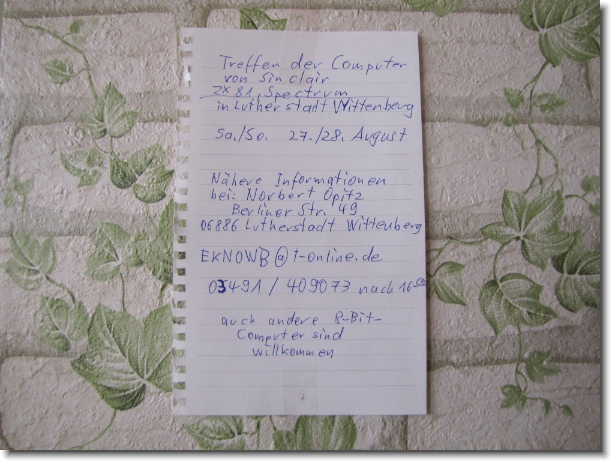 Treffen der Computer
von Sinclair
ZX 81, Spectrum
in Lutherstadt Wittenberg
Sa./So. 27./28. August
Nähere Informationen
bei: Norbert Opitz
Berliner Str. 49
06886 Lutherstadt Wittenberg
EKNOWB@t-online.de
03491 / 409073 nach 16⁰⁰
auch andere 8-Bit-
Computer sind
willkommen